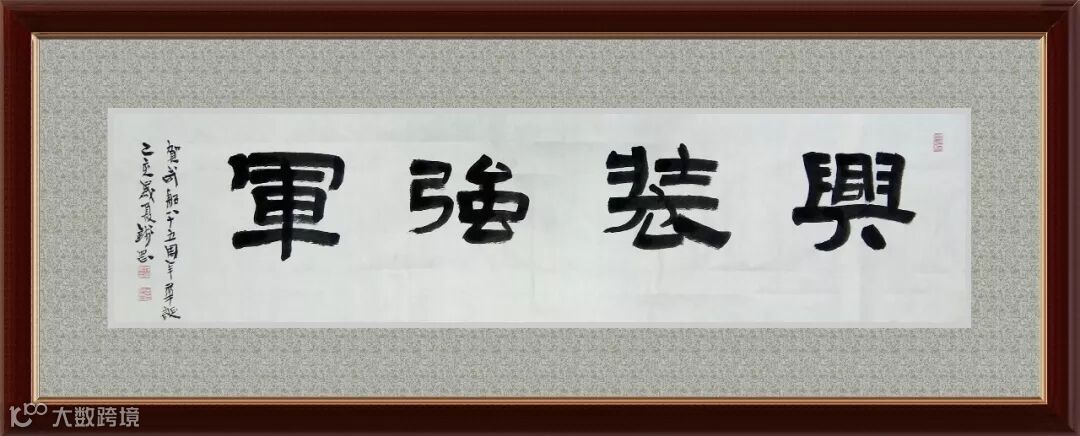 興裝強軍
賀武船八十五周年華誕
乙亥晟夏
大数跨境